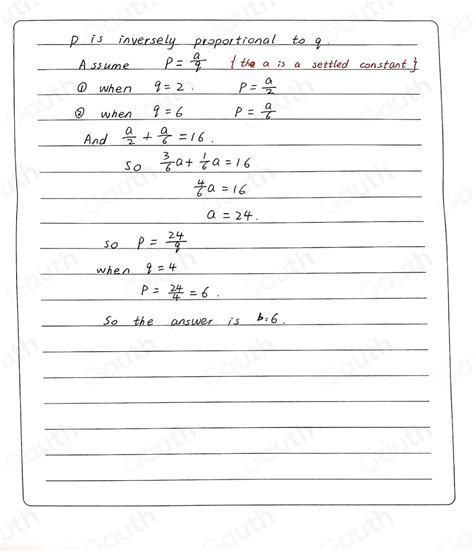 p is inversely proportional to q.
Assume P = a/q { the a is a settled constant }
① when q = 2. P = a/2
② when q = 6 P = a/6
And a/2 + a/6 = 16.
So 3/6 a + 1/6 a = 16
4/6 a = 16
a = 24.
so P = 24/q
when q = 4
P = 24/4 = 6.
So the answer is b=6.